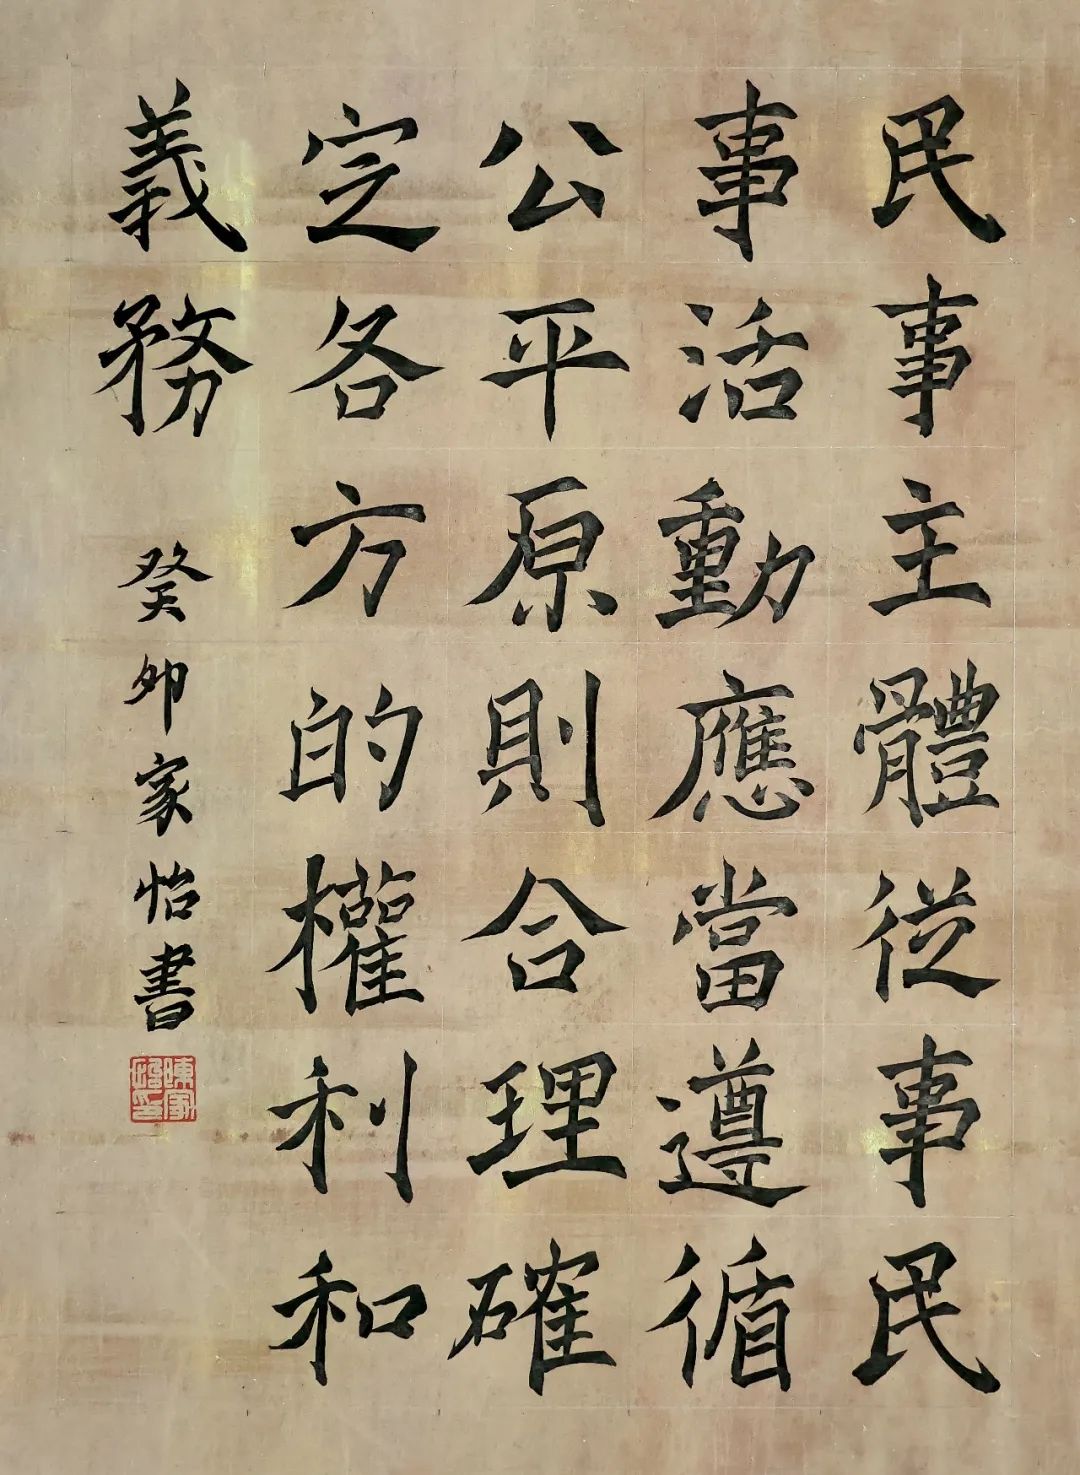 民事主體從事民
事活動應當遵循
公平原則合理確
定各方的權利和
義務
癸卯家怡書
陳家怡印